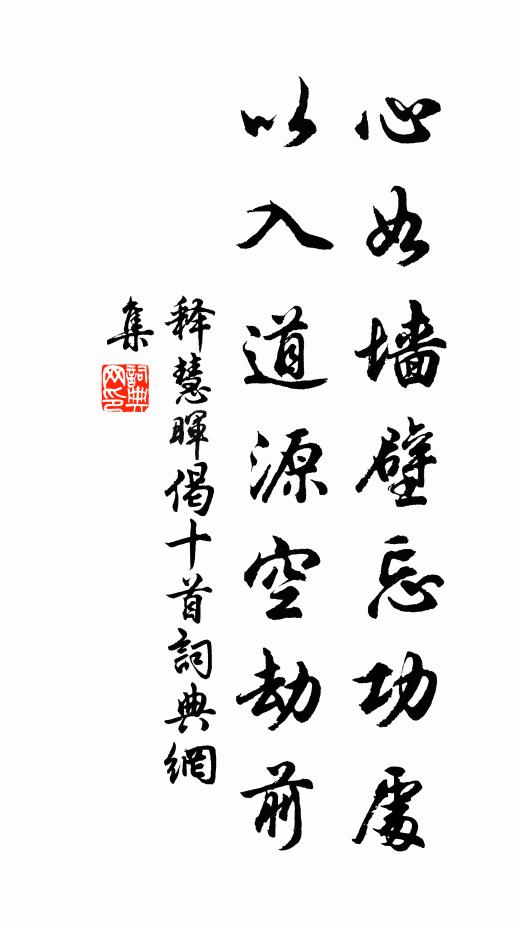 心如墙壁忘功處
以入道源空劫前
释慧暉偈十首詞典網
集
詞典网印